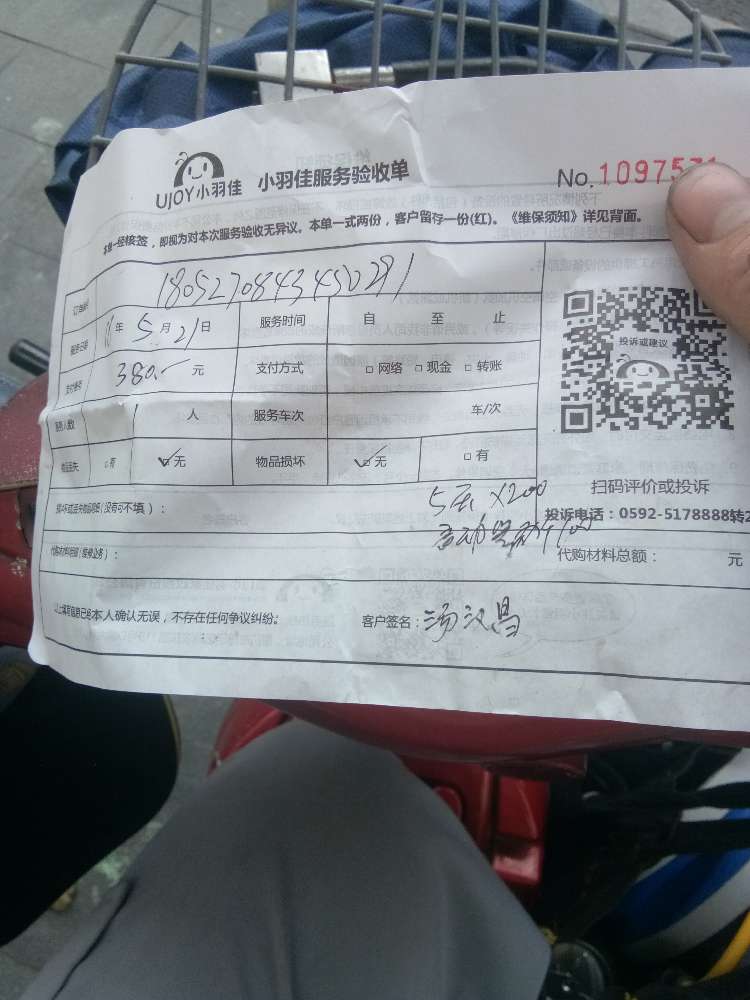 UJOY小羽佳 小羽佳服务验收单 No.1097571
本单一经核签，即视为对本次服务验收无异议。本单一式两份，客户留存一份(红)。《维保须知》详见背面。
订单编号 1805270843450291
服务日期 年 5月21日 服务时间 自 至 止
支付 380.- 元 支付方式 □网络 □现金 □转账
投诉或建议
服务人数 1 人 服务车次 车/次
物品丢失 □有 ☑无 物品损坏 ☑无 □有
扫码评价或投诉
损坏或丢失物品明细(没有可不填)：
5 ×200
投诉电话：0592-5178888转2
代购材料明细(维修业务)：
代购材料总额： 元
以上填写信息已经本人确认无误，不存在任何争议纠纷。 客户签名：汤汉昌